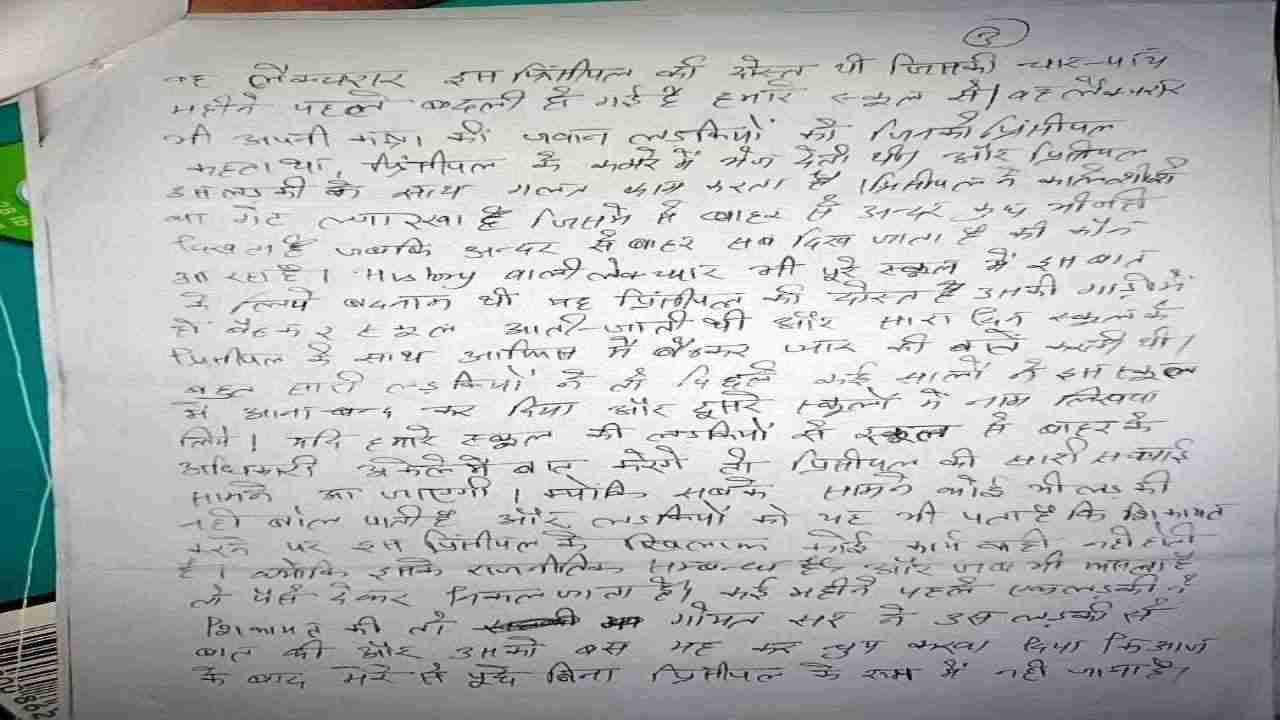 3
यह लैक्चरार इस प्रिंसीपल की दोस्त थी जिसकी चार-पाँच
महीने पहले बदली हो गई है हमारे स्कूल से। वह लैक्चरार
भी अपनी कक्षा की जवान लडकियों को जिनको प्रिंसीपल
कहता था, प्रिंसीपल के कमरे में भेज देती थी। और प्रिंसीपल
उस लडकी के साथ गलत काम करता है। प्रिंसीपल ने काले शीशों
का गेट लगा रखा है जिसमें से बाहर से अन्दर कुछ भी नही
दिखता है जबकि अन्दर से बाहर सब दिख जाता है की कौन
आ रहा है। History वाली लेक्चरार भी पूरे स्कूल में इस बात
के लिये बदनाम थी यह प्रिंसीपल की दोस्त है उसकी गाड़ी में
ही बैठकर स्कूल आती-जाती थी और सारा दिन स्कूल के
प्रिंसीपल के साथ आफिस में बैठकर प्यार की बातें करती थी।
बहुत सारी लडकियों ने तो पिछले कई सालों में इस स्कूल
में आना बन्द कर दिया और दूसरे स्कूलों में नाम लिखवा
लिये। यदि हमारे स्कूल की लडकियों से स्कूल से बाहर के
अधिकारी अकेले में बात करेगे तो प्रिंसीपल की सारी सच्चाई
सामने आ जाएगी। क्योकि सबके सामने कोई भी लडकी
नही बोल पाती है और लडकियों को यह भी पता है कि शिकायत
करने पर इस प्रिंसीपल के खिलाफ कोई कार्यवाही नही होती
है। क्योकि इसके राजनीतिक सम्बन्ध है और जब भी फसता है
तो पैसे देकर निकल जाता है। कई महीने पहले एक लडकी ने
शिकायत की तो गोमित सर ने उस लडकी से
बात की और उसको बस यह कह कर चुप करवा दिया कि आज
के बाद मेरे से पूछे बिना प्रिंसीपल के रूम में नही जाना है।